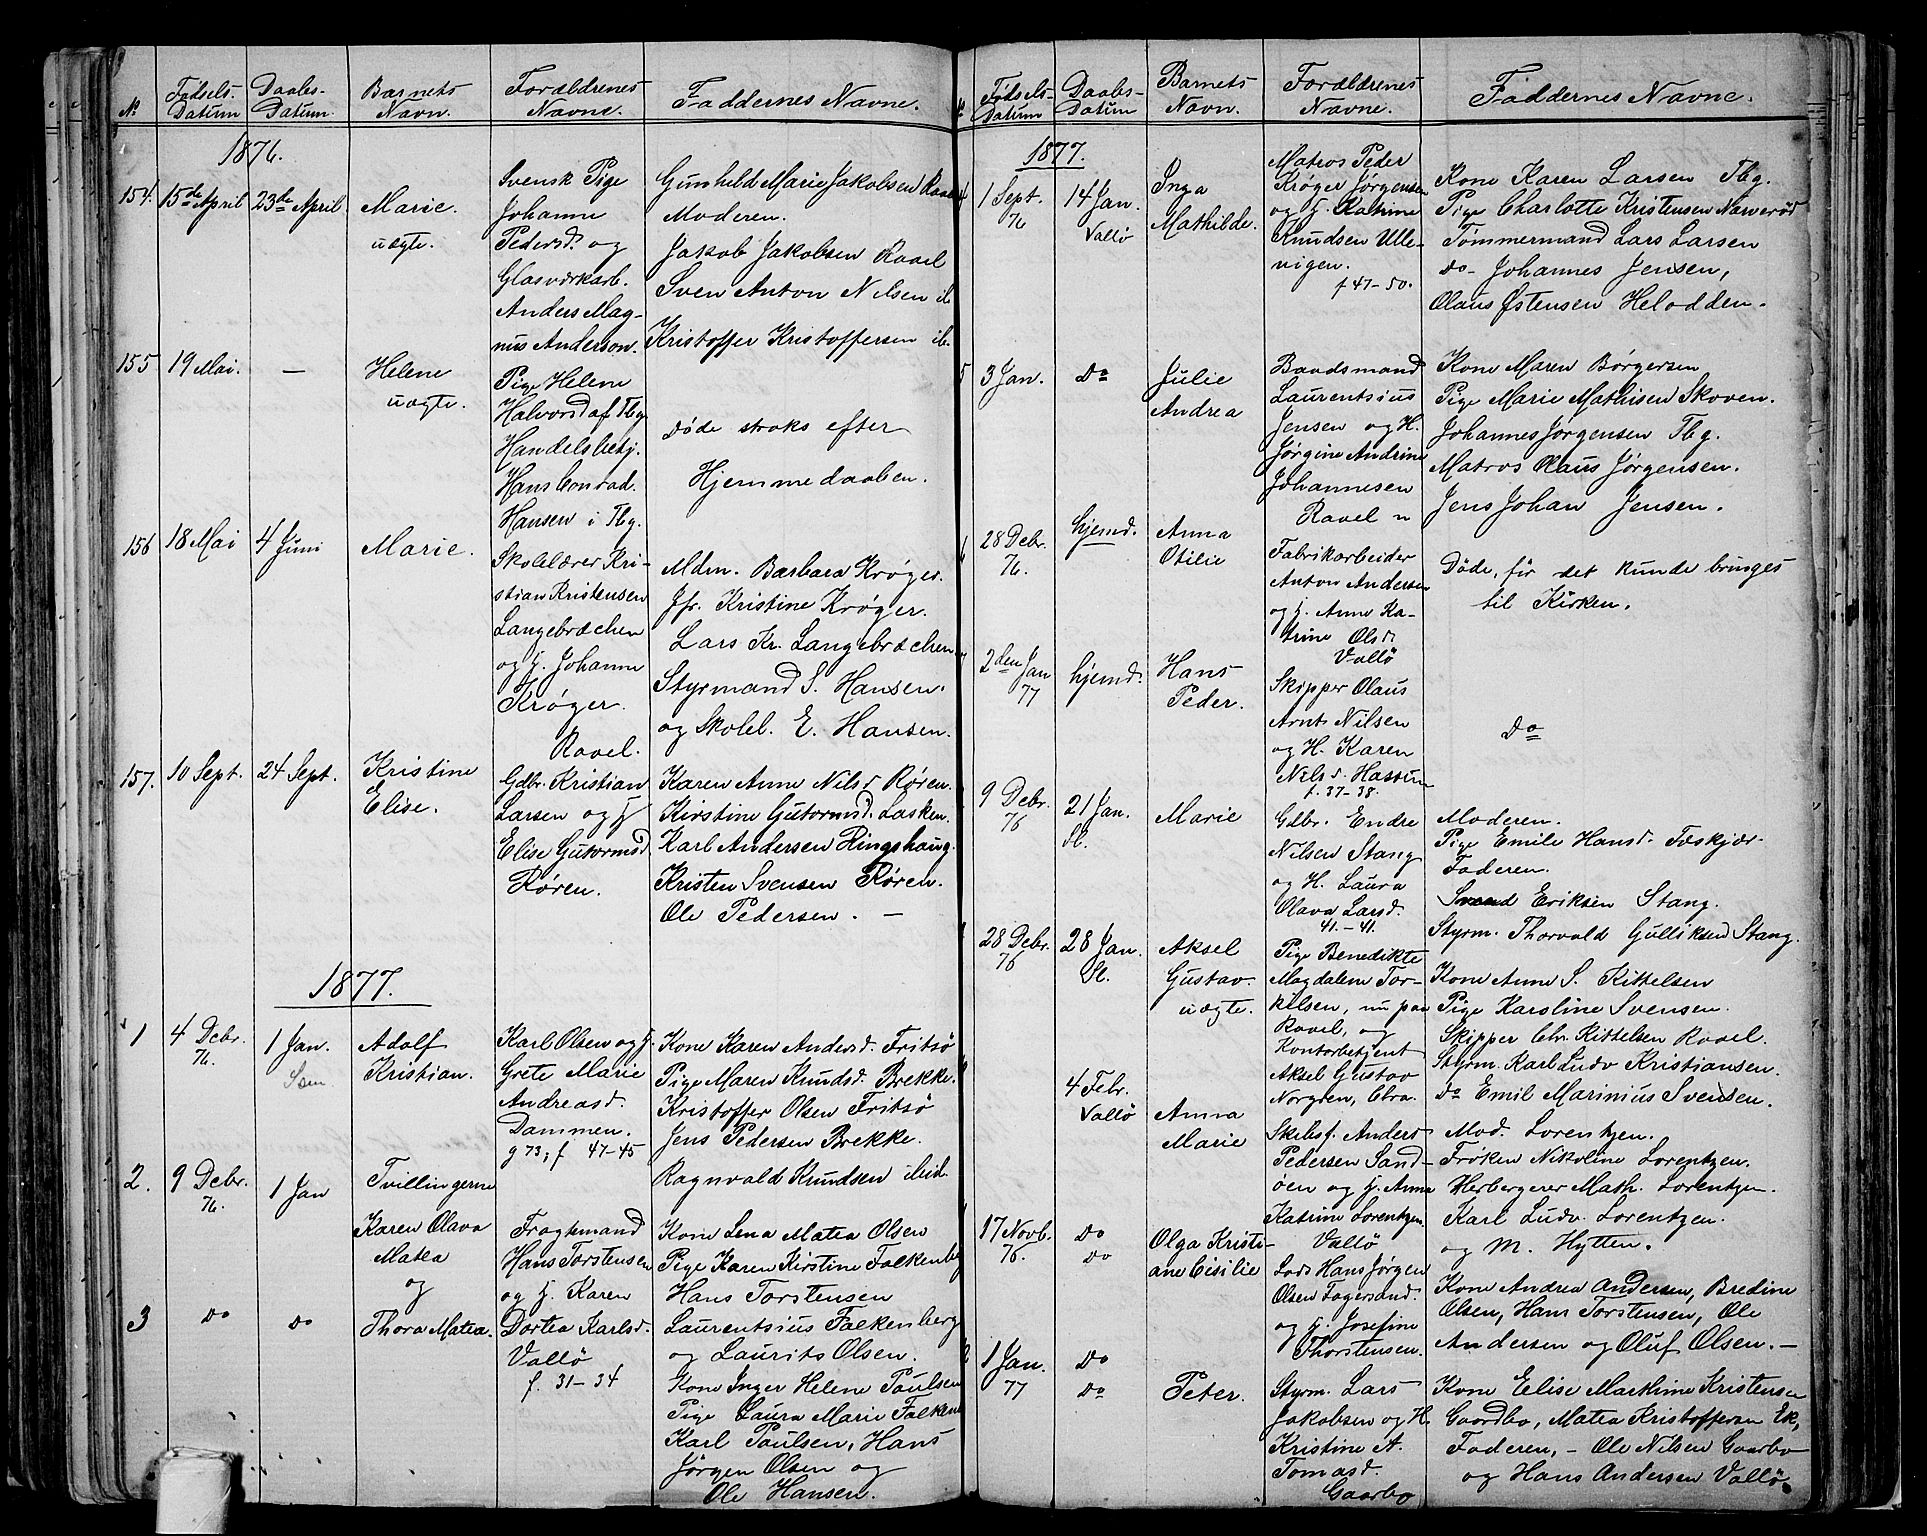 No
Fødsels-
Datum
Daabs-
Datum.
Barnets
Navn.
Forældrenes
Navne.
Faddernes Navne.
1876.
154. 15de April 23de April
Marie.
uægte.
Svensk Pige
Johanne
Pedersd. og
Glasværksarb.
Anders Mag-
nus Anderson.
Gunhild Marie Jakobsen
Moderen.
Jakob Jakobsen Ravel
Sven Anton Nilsen ib
Kristoffer Kristoffersen ib.
155 19 Mai. —
Helene
uægte.
Pige Helene
Halvorsd af Tbg.
Handelsbetj.
Hans Conrad.
Hansen i Tbg.
døde straks efter
Hjemmedaaben.
156 18 Mai 4 Juni
Marie.
Skolelærer Kri-
stian Kristensen
Langebræchen
og H. Johanne
Krøger.
Ravel.
Mdm. Barbara Krøger.
Jfr. Kristine Krøger.
Lars Kr. Langebræchen
Styrmand S. Hansen.
og Skolel. E. Hansen.
157. 10 Sept. 24 Sept.
Kristine
Elise.
Gdbr. Kristian
Larsen og H
Elise Gutormsd
Røren.
Karen Anne Nilsd Røren.
Kirstine Gutormsd. Lasken.
Karl Andersen Ringshaug.
Kristen Svensen Røren.
Ole Pedersen. —
1877.
1 4 Debr.
76.
1 Jan.
Sem
Adolf
Kristian.
Karl Olsen og H.
Grete Marie
Andreasd.
Dammen.
g 73, f 47-45
Kone Karen Andersd. Fritsø
Pige Maren Knudsd. Brekke.
Kristoffer Olsen Fritsø
Jens Pedersen Brekke.
Ragnvald Knudsen ibid.
2. 9 Debr.
76.
1 Jan
Tvillingerne
Karen Olava
Matea
og
Fragtemand
Hans Torstensen
og H. Karen
Dortea Karlsd.
Vallö
f. 31-34
Kone Lena Matea Olsen
Pige Karen Kirstine Falkenbg
Hans Torstensen
Laurentsius Falkenberg
og Laurits Olsen.
3 do do
Thora Matea.
Kone Inger Helene Paulsen
Pige Laura Marie Falkenb
Karl Paulsen, Hans
Jørgen Olsen og
Ole Hansen.
No
Fødsels-
Datum
Daabs-
Datum
Barnets
Navn.
Forældrenes
Navne.
Faddernes Navne.
1877.
4 1 Sept.
76
14 Jan.
Vallö
Inga
Mathilde.
Matros Peder
Krøger Jørgensen
og H. Katrine
Knudsen Ulle-
vigen.
f 47-50.
Kone Karen Larsen Tbg.
Pige Charlotte Kristensen Narverød
Tømmermand Lars Larsen
do- Johannes Jensen,
Olaus Østensen Helodden.
5 3 Jan. do
Julie
Andrea
Baadsmand
Laurentsius
Jensen og H.
Jørgine Andrine
Johannesen
Ravel
Kone Maren Børgersen
Pige Marie Mathisen Skoven.
Johannes Jørgensen Tbg.
Matros Olaus Jørgensen.
Jens Johan Jensen.
6 28 Debr.
76.
hjemd.
Anna
Otilie
Fabrikarbeider
Anton Andersen
og H. Anne Ka-
trine Olsd.
Vallö
Døde, før det kunde bringes
til Kirken.
7 2den Jan
77
hjemd.
Hans
Peder.
Skipper Olaus
Arnt Nilsen
og H. Karen
Nilsd. Hassum
f. 37-38.
do
9 Debr.
76
21 Jan.
Sl.
Marie
Gdbr. Endre
Nilsen Stang
og H. Laura
Olava Larsd.
41.-41.
Moderen.
Pige Emilie Hansd. Foskjær
Faderen.
Svend Eriksen Stang.
Styrm. Thorvald Gulliksen Stang.
28 Debr.
76
28 Jan.
Sl.
Aksel
Gustav.
uægte.
Pige Benedikte
Magdalene Tor-
kilsen, nu paa
Ravel, og
Kontorbetjent
Aksel Gustav
Norgren, Chra.
Kone Anne S. Kittelsen
Pige Karoline Svensen.
Skipper Chr. Kittelsen Ravel.
Styrm. Karl Ludv Kristiansen.
do Emil Marinius Svensen.
4 Febr.
Vallö
Anna
Marie
Skibsf. Anders
Pedersen Sand-
öen og H. Anna
Katrine Lorentzen.
Vallö
Mad. Lorentzen.
Frøken Nikoline Lorentzen.
Herbergerer Math. Lorentzen.
Karl Ludv. Lorentzen.
og M. Hytten.
17 Novb.
76.
do
do
Olga Kristi-
ane Cisilie
Lods Hans Jørgen
Olsen Fagersand.
og H. Josefine
Thorstensen.
Kone Andrea Andersen, Bredine
Olsen, Hans Torstensen, Ole
Andersen og Oluf Olsen. —
1 Jan.
77
do
do
Peter.
Styrm. Lars
Jakobsen og H.
Kristine A.
Tomasd.
Gaarbo
Kone Elise Marthine Kristensen
Gaardbo, Matea Kristoffersen Ek,
Faderen, – Ole Nilsen Gaarbo
og Hans Andersen Vallö.